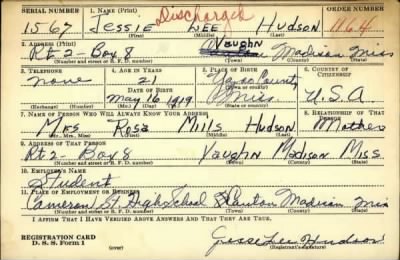 SERIAL NUMBER 1. NAME (Print) Discharged ORDER NUMBER
1567 Jessie Lee Hudson 1164
(First) (Middle) (Last)
2. ADDRESS (Print) Vaughn
Rt 2- Box 8 Canton Madison Miss
(Number and street or R. F. D. number) (Town) (County) (State)
3. TELEPHONE 4. AGE IN YEARS 5. PLACE OF BIRTH 6. COUNTRY OF CITIZENSHIP
none 21 Yazoo County
DATE OF BIRTH (Town or county)
May 16 1919 Miss U.S.A
(Exchange) (Number) (Mo.) (Day) (Yr.) (State or country)
7. NAME OF PERSON WHO WILL ALWAYS KNOW YOUR ADDRESS 8. RELATIONSHIP OF THAT PERSON
Mrs Rosa Mills Hudson Mother
(Mr., Mrs., Miss) (First) (Middle) (Last)
9. ADDRESS OF THAT PERSON
Rt 2- Box 8 Vaughn Madison Miss
(Number and street or R. F. D. number) (Town) (County) (State)
10. EMPLOYER'S NAME
Student
11. PLACE OF EMPLOYMENT OR BUSINESS
Cameron St. High School Canton Madison Miss
(Number and street or R. F. D. number) (Town) (County) (State)
I AFFIRM THAT I HAVE VERIFIED ABOVE ANSWERS AND THAT THEY ARE TRUE.
REGISTRATION CARD
D. S. S. Form 1 (over) Jesse Lee Hudson
(Registrant's signature)